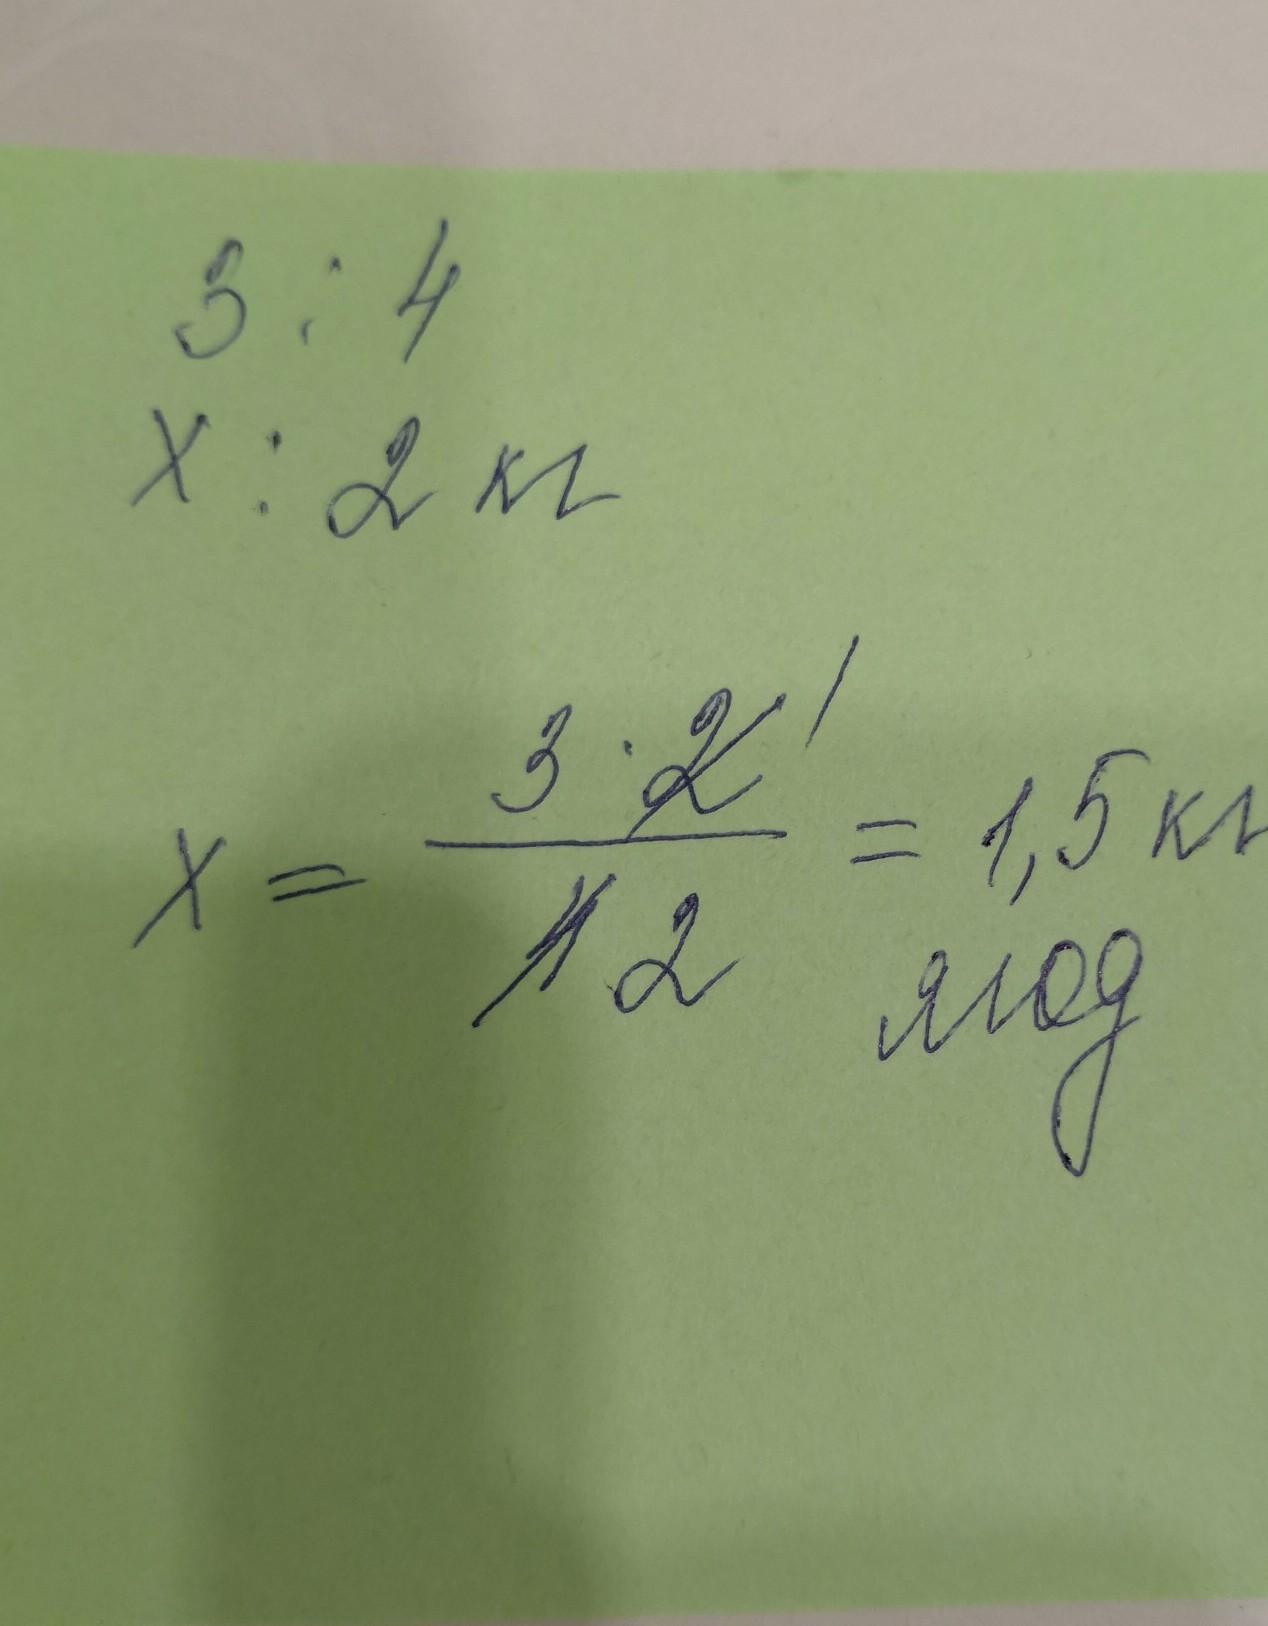 3 : 4
x : 2 кг
x = 3 · 2 1 / 4 2 = 1,5 кг
ягод